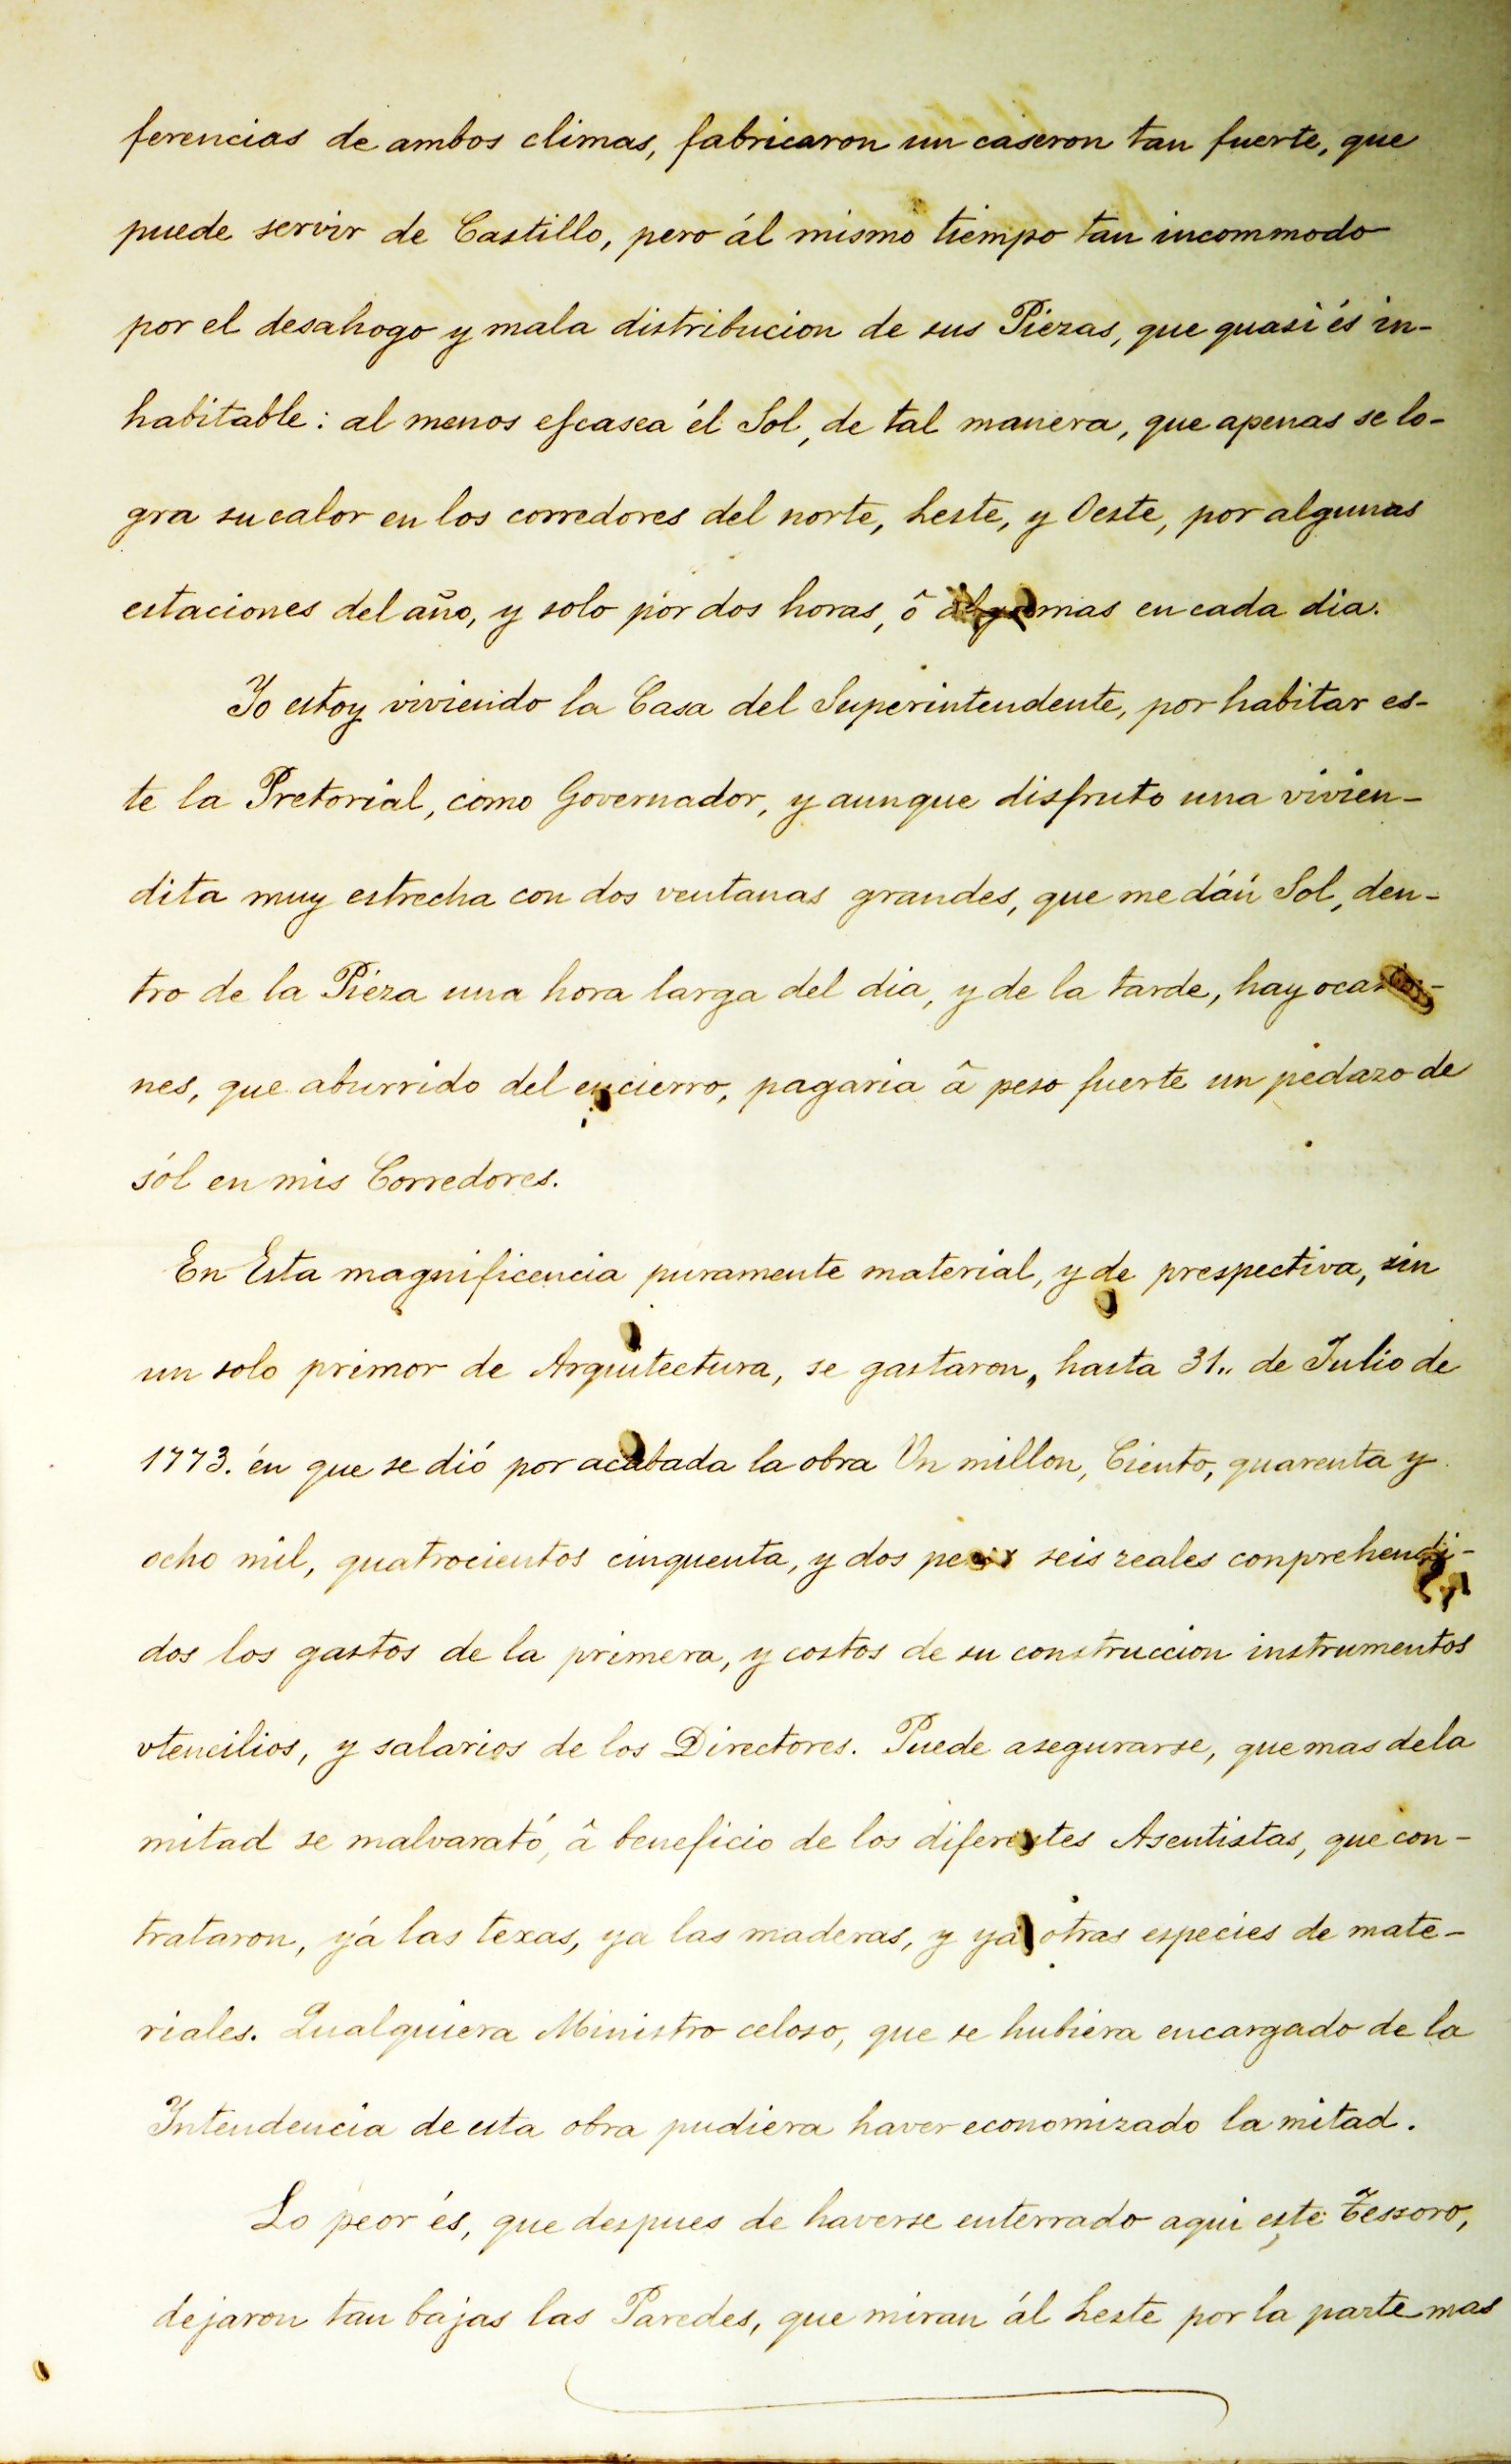 ferencias de ambos climas, fabricaron un caseron tan fuerte, que
puede servir de Castillo, pero ál mismo tiempo tan incommodo
por el desahogo y mala distribucion de sus Piezas, que quasi és in-
habitable: al menos escasea él Sol, de tal manera, que apenas se lo-
gra su calor en los corredores del norte, Leste, y Oeste, por algunas
estaciones del año, y solo por dos horas, ô algo mas en cada dia.
Yo estoy viviendo la Casa del Superintendente, por habitar es-
te la Pretorial, como Governador, y aunque disfruto una vivien-
dita muy estrecha con dos ventanas grandes, que me dán Sol, den-
tro de la Pieza una hora larga del dia, y de la tarde, hay ocasio-
nes, que aburrido del encierro, pagaria â peso fuerte un pedazo de
sól en mis Corredores.
En Esta magnificencia puramente material, y de prespectiva, sin
un solo primor de Arquitectura, se gastaron, hasta 31.. de Julio de
1773. én que se dió por acabada la obra Un millon, Ciento, quarenta y
ocho mil, quatrocientos cinquenta, y dos pesos seis reales conprehendi-
dos los gastos de la primera, y costos de su construccion instrumentos
vtencilios, y salarios de los Directores. Puede asegurarse, que mas de la
mitad se malvarató, â beneficio de los diferentes Asentistas, que con-
trataron, yá las texas, ya las maderas, y ya otras especies de mate-
riales. Qualquiera Ministro celoso, que se hubiera encargado de la
Intendencia de esta obra pudiera haver economizado la mitad.
Lo peor és, que despues de haverse enterrado aqui este Tessoro,
dejaron tan bajas las Paredes, que miran ál Leste por la parte mas